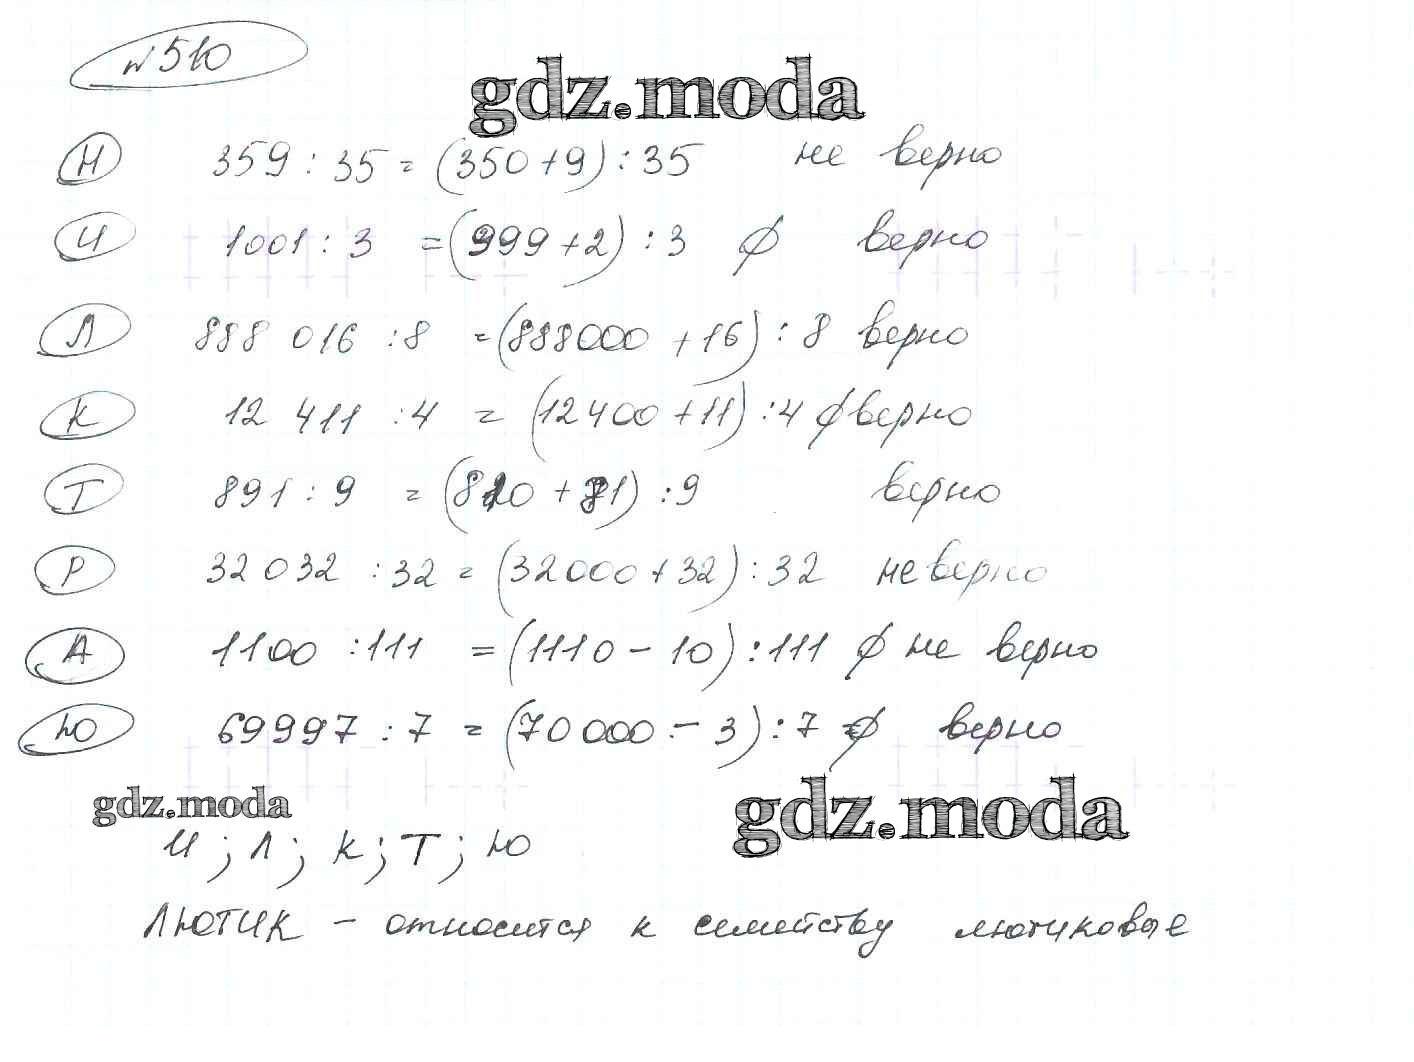 №510
gdz.moda
Н 359 : 35 = (350 + 9) : 35 не верно
И 1001 : 3 = (999 + 2) : 3 ∅ верно
Л 888 016 : 8 = (888000 + 16) : 8 верно
К 12 411 : 4 = (12400 + 11) : 4 ∅ верно
Т 891 : 9 = (810 + 81) : 9 верно
Р 32 032 : 32 = (32000 + 32) : 32 не верно
А 1100 : 111 = (1110 - 10) : 111 ∅ не верно
Ю 69997 : 7 = (70 000 - 3) : 7 ∅ верно
gdz.moda
gdz.moda
И ; Л ; К ; Т ; Ю
Лютик - относится к семейству лютиковые